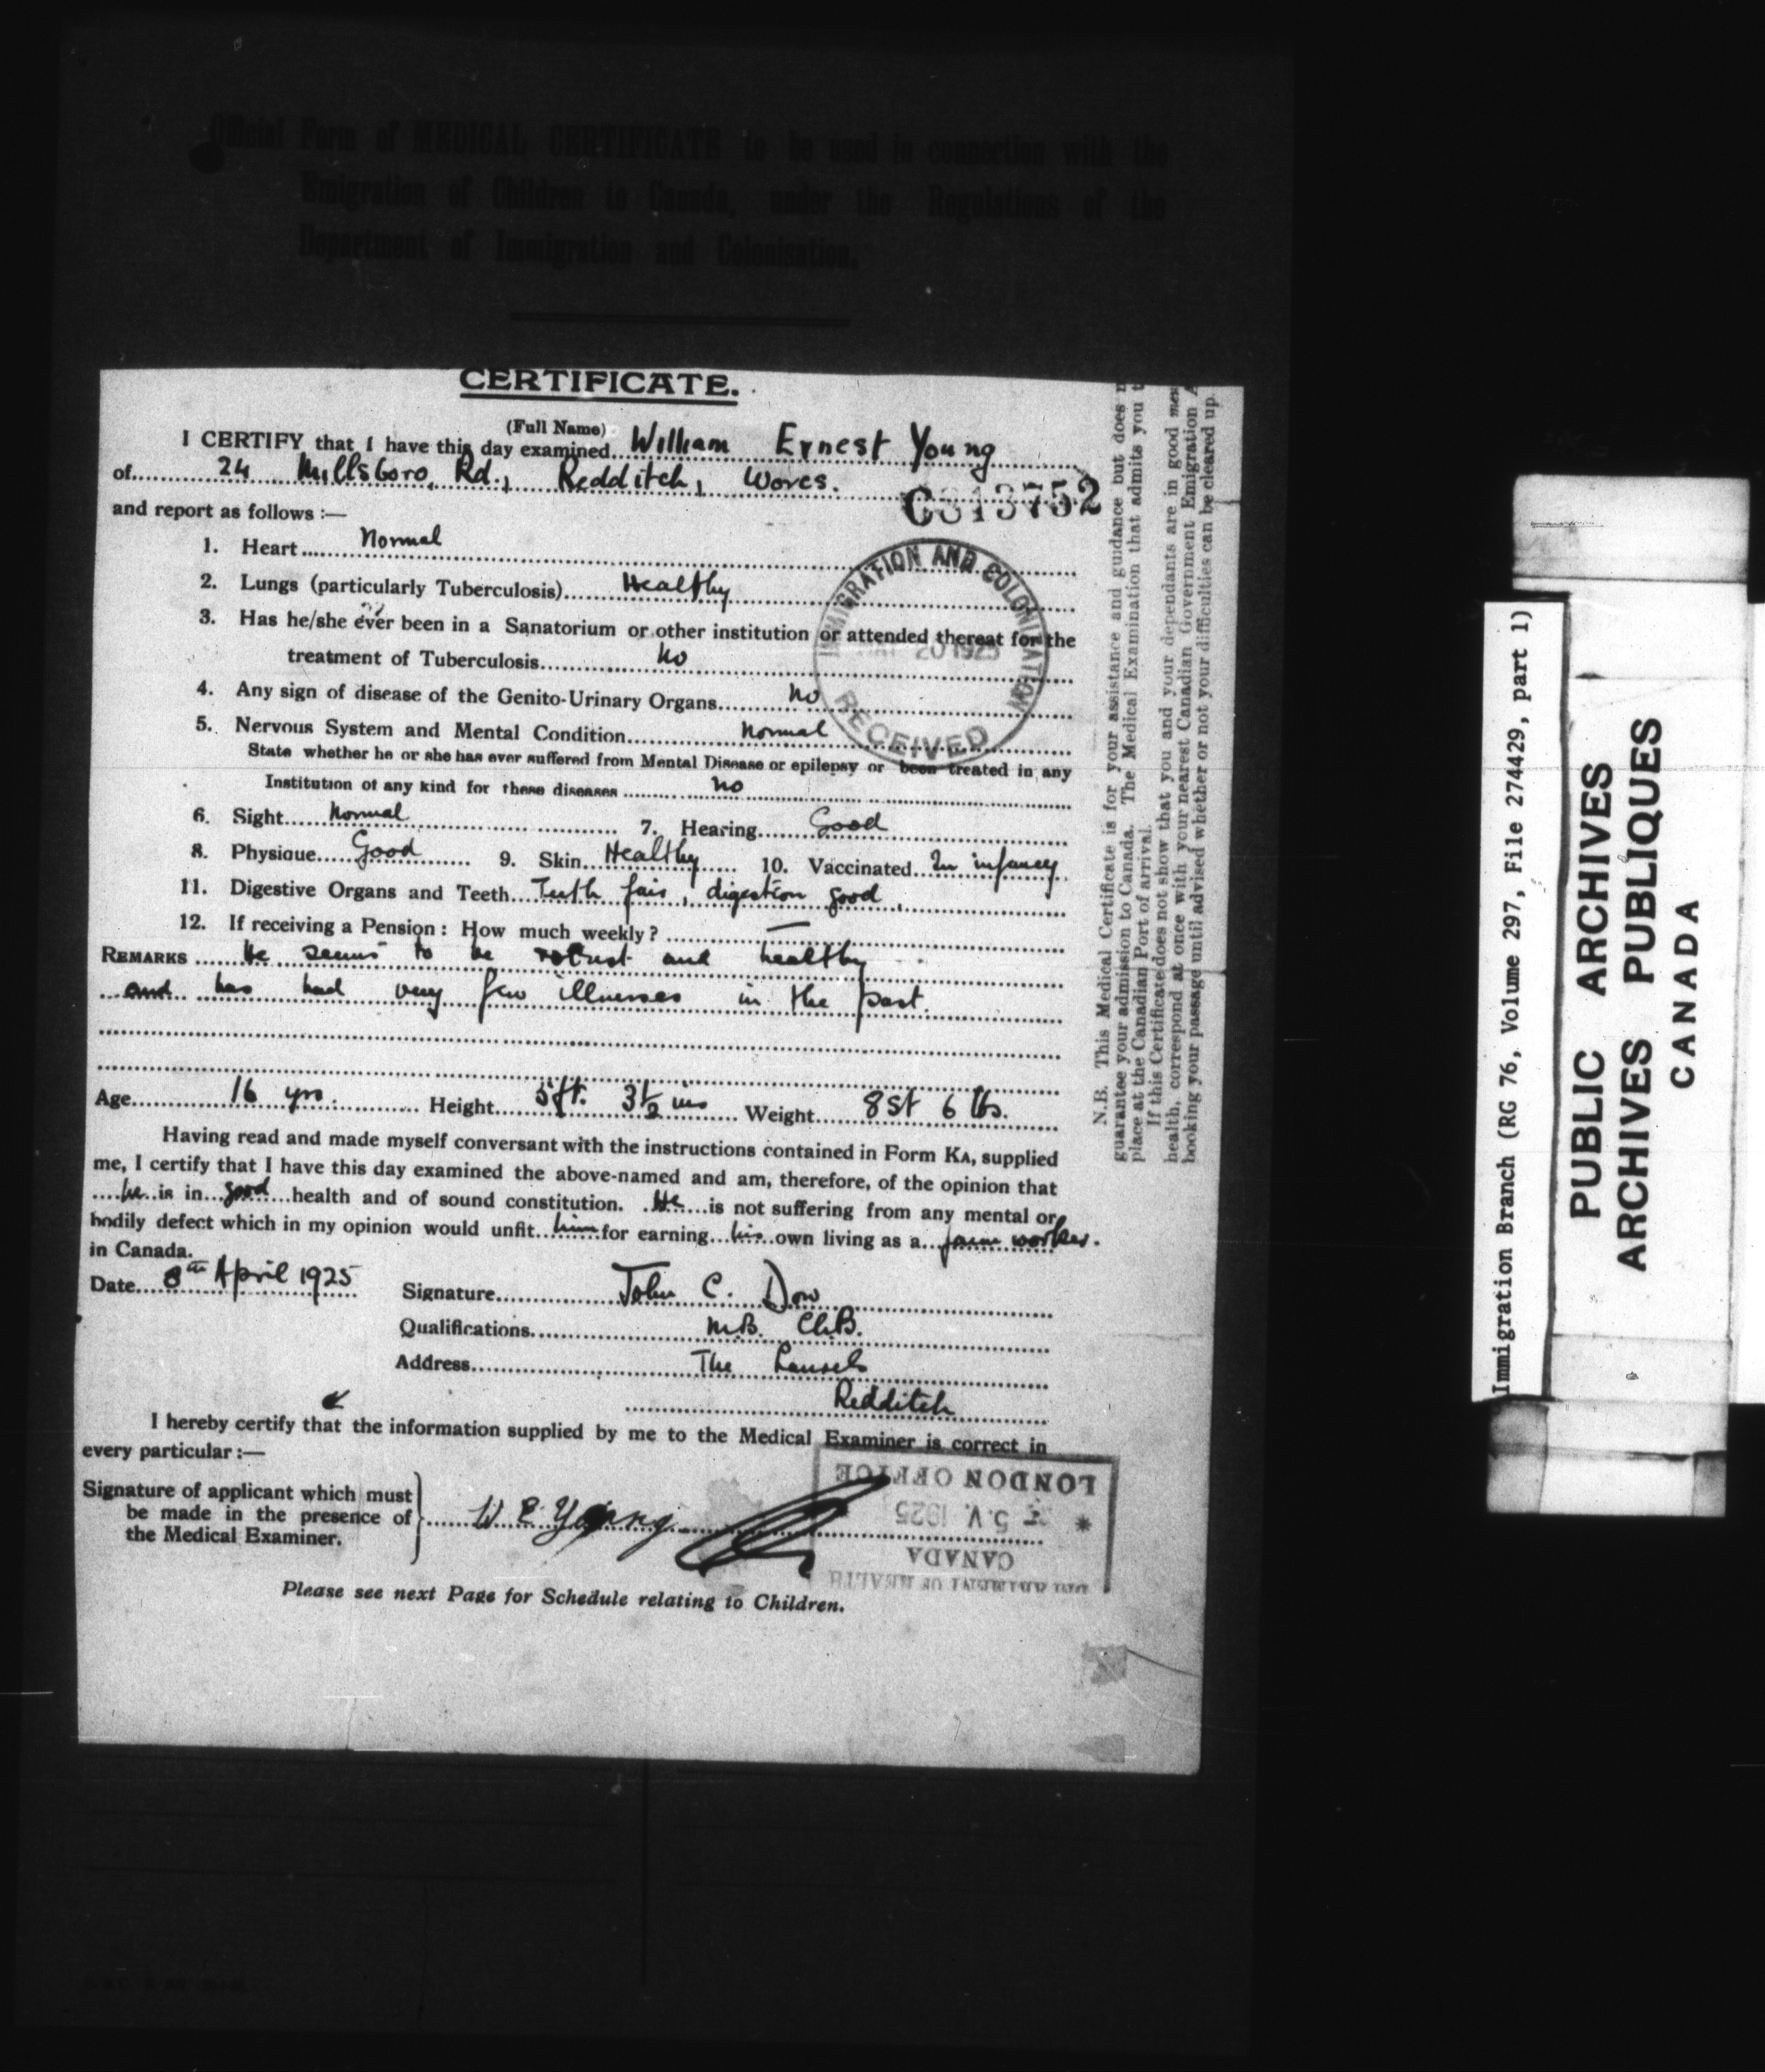 Official Form of MEDICAL CERTIFICATE to be used in connection with the
Emigration of Children to Canada, under the Regulations of the
Department of Immigration and Colonisation.
CERTIFICATE.
(Full Name)
I CERTIFY that I have this day examined William Ernest Young
of 24 Millsboro Rd., Redditch, Worcs.
C313752
and report as follows :—
1. Heart Normal
2. Lungs (particularly Tuberculosis) Healthy
3. Has he/she ever been in a Sanatorium or other institution or attended thereat for the
treatment of Tuberculosis No
4. Any sign of disease of the Genito-Urinary Organs No
5. Nervous System and Mental Condition Normal
State whether he or she has ever suffered from Mental Disease or epilepsy or been treated in any
Institution of any kind for these diseases no
6. Sight Normal 7. Hearing Good
8. Physique Good 9. Skin Healthy 10. Vaccinated In infancy
11. Digestive Organs and Teeth Teeth fair, digestion good,
12. If receiving a Pension : How much weekly ? —
REMARKS he seems to be robust and healthy
and has had very few illnesses in the past.
Age 16 yrs. Height 5ft. 3½ ins Weight 8st 6 lbs.
Having read and made myself conversant with the instructions contained in Form KA, supplied
me, I certify that I have this day examined the above-named and am, therefore, of the opinion that
he is in good health and of sound constitution. He is not suffering from any mental or
bodily defect which in my opinion would unfit him for earning his own living as a farm worker.
in Canada.
Date 8th April 1925
Signature John C. Dow
Qualifications M.B. Ch.B.
Address The Laurels
Redditch
I hereby certify that the information supplied by me to the Medical Examiner is correct in
every particular :—
Signature of applicant which must
be made in the presence of
the Medical Examiner.
W E Young
Please see next Page for Schedule relating to Children.
IMMIGRATION AND COLONIZATION
20 1925
RECEIVED
DEPARTMENT OF HEALTH
CANADA
5.V.1925
LONDON OFFICE
N.B. This Medical Certificate is for your assistance and guidance but does
guarantee your admission to Canada. The Medical Examination that admits you
place at the Canadian Port of arrival.
If this Certificate does not show that you and your dependants are in good
health, correspond at once with your nearest Canadian Government Emigration
booking your passage until advised whether or not your difficulties can be cleared up.
Immigration Branch (RG 76, Volume 297, File 274429, part 1)
PUBLIC ARCHIVES
ARCHIVES PUBLIQUES
CANADA